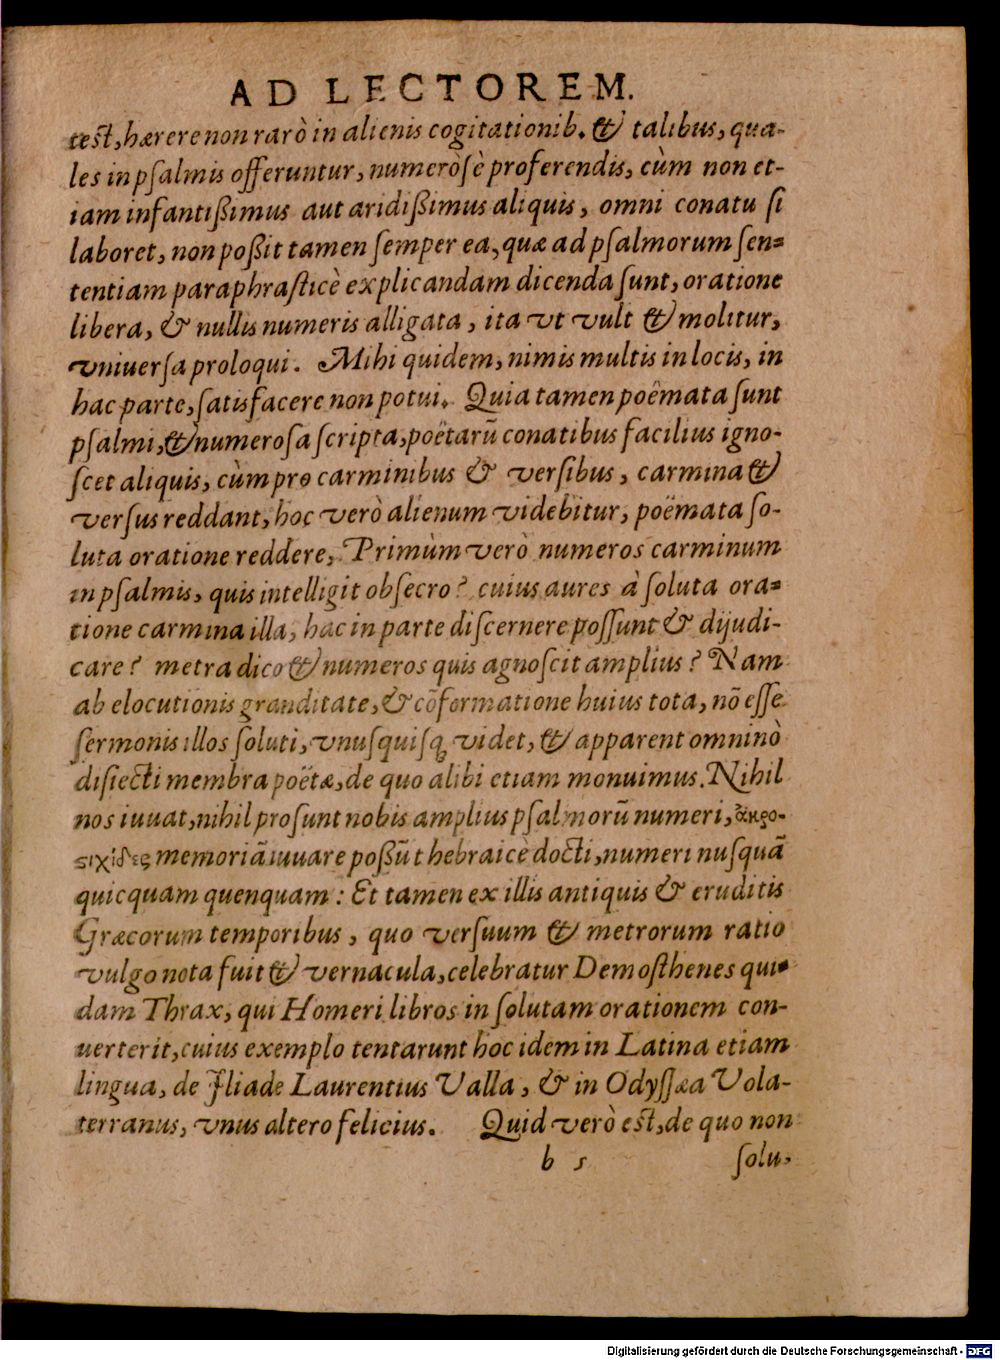 AD LECTOREM.
test, hærere non rarò in alienis cogitationib. & talibus, qua-
les in psalmis offeruntur, numeròsè proferendis, cùm non et-
iam infantißimus aut aridißimus aliquis, omni conatu si
laboret, non poßit tamen semper ea, quæ ad psalmorum sen=
tentiam paraphrasticè explicandam dicenda sunt, oratione
libera, & nullis numeris alligata, ita vt vult & molitur,
vniuersa proloqui. Mihi quidem, nimis multis in locis, in
hac parte, satisfacere non potui. Quia tamen poëmata sunt
psalmi, & numerosa scripta, poëtarū conatibus facilius igno-
scet aliquis, cùm pro carminibus & versibus, carmina &
versus reddant, hoc verò alienum videbitur, poëmata so-
luta oratione reddere, Primùm verò numeros carminum
in psalmis, quis intelligit obsecro? cuius aures à soluta ora=
tione carmina illa, hac in parte discernere possunt & dijudi-
care? metra dico & numeros quis agnoscit amplius? Nam
ab elocutionis granditate, & cōformatione huius tota, nō esse
sermonis illos soluti, vnusquisq; videt, & apparent omninò
disiecti membra poëtæ, de quo alibi etiam monuimus. Nihil
nos iuuat, nihil prosunt nobis amplius psalmorū numeri, ἀκρο-
ςιχίδες memoriā iuuare poßūt hebraicè docti, numeri nusquā
quicquam quenquam: Et tamen ex illis antiquis & eruditis
Græcorum temporibus, quo versuum & metrorum ratio
vulgo nota fuit & vernacula, celebratur Demosthenes qui-
dam Thrax, qui Homeri libros in solutam orationem con-
uerterit, cuius exemplo tentarunt hoc idem in Latina etiam
lingua, de Iliade Laurentius Valla, & in Odyssæa Vola-
terranus, vnus altero felicius. Quid verò est, de quo non
b 5 solu,
Digitalisierung gefördert durch die Deutsche Forschungsgemeinschaft - DFG